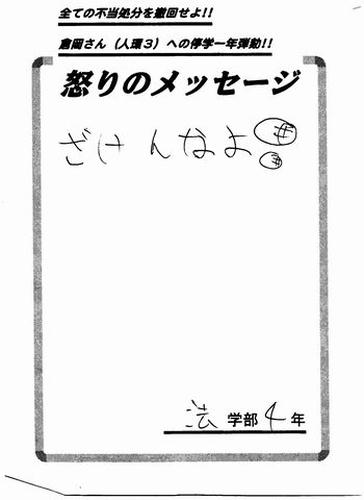 全ての不当処分を撤回せよ!!
倉岡さん（人環３）への停学一年弾劾!!
怒りのメッセージ
ざけんなよ
法 学部 4 年